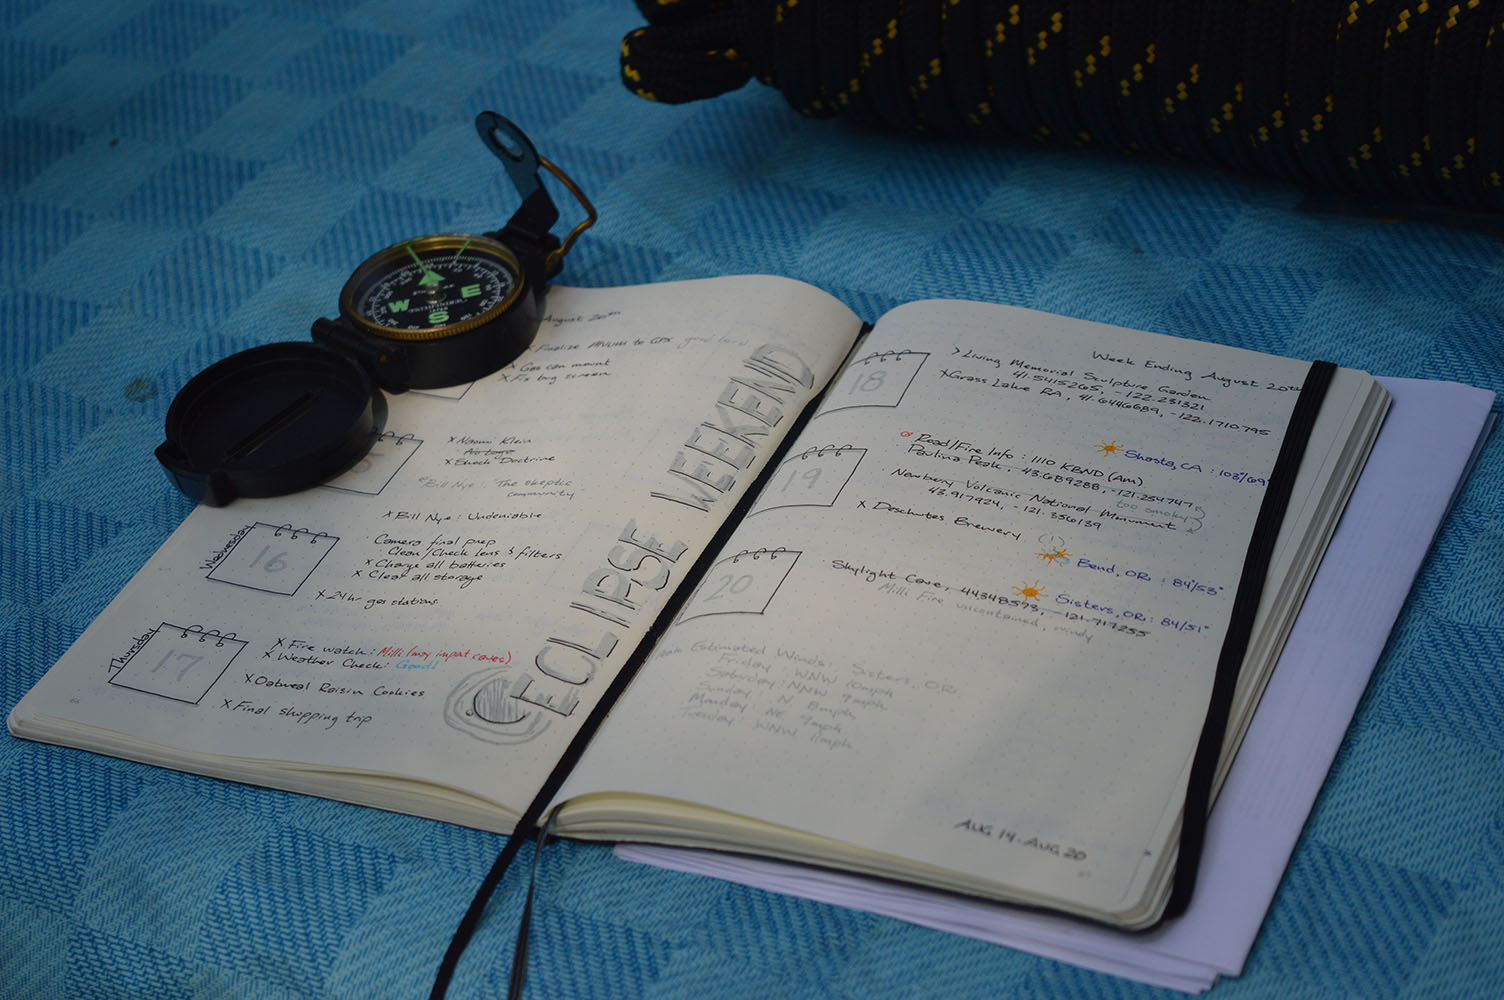 August 20th
Finalize
to GPX good
X Gas can mount
X Fix bug screen
X Naomi Klein
X Shock Doctrine
Bill Nye : The skeptic
community
X Bill Nye : Undeniable
Wednesday
16
Camera final prep
Clean/Check lens & filters
X Charge all batteries
X Clear all storage
X 24hr gas stations
Thursday
17
X Fire watch : Milli (may impact caves)
X Weather Check : Good!
X Oatmeal Raisin Cookies
X Final shopping trip
ECLIPSE WEEKEND
Week Ending August 20th
18
Living Memorial Sculpture Garden
41.5415265, -122.231321
X Grass Lake RA, 41.6446689, -122.1710795
Shasta, CA : 103°/69°
19
Road/Fire Info : 1110 KBND (Am)
Paulina Peak, 43.689288, -121.254747
Newberry Volcanic National Monument
too smoky
43.917924, -121.356139
X Deschutes Brewery (!)
Bend, OR : 84°/53°
20
Skylight Cave, 44348573, -121.717255
Milli Fire uncontained, windy
Sisters, OR : 84/51°
Estimated Winds : Sisters, OR
Friday : WNW 10mph
Saturday : NNW 9mph
Sunday : N 8mph
Monday : NE 9mph
Tuesday : WNW 11mph
AUG 14 - AUG 20
W
E
S